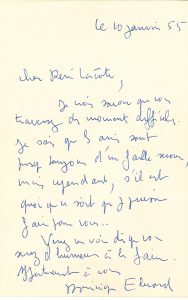 le 10 janvier 55
cher René Lacôte,
Je viens savoir que vous
traversez des moments difficiles.
Je sais que les amis sont
presque toujours d'un faible secours,
mais, cependant, s'il est
quoi que ce soit que je puisse
faire pour vous...
Venez me voir dès que vous
serez d'humeur à le faire.
Affectueusement à vous
Dominique Eluard